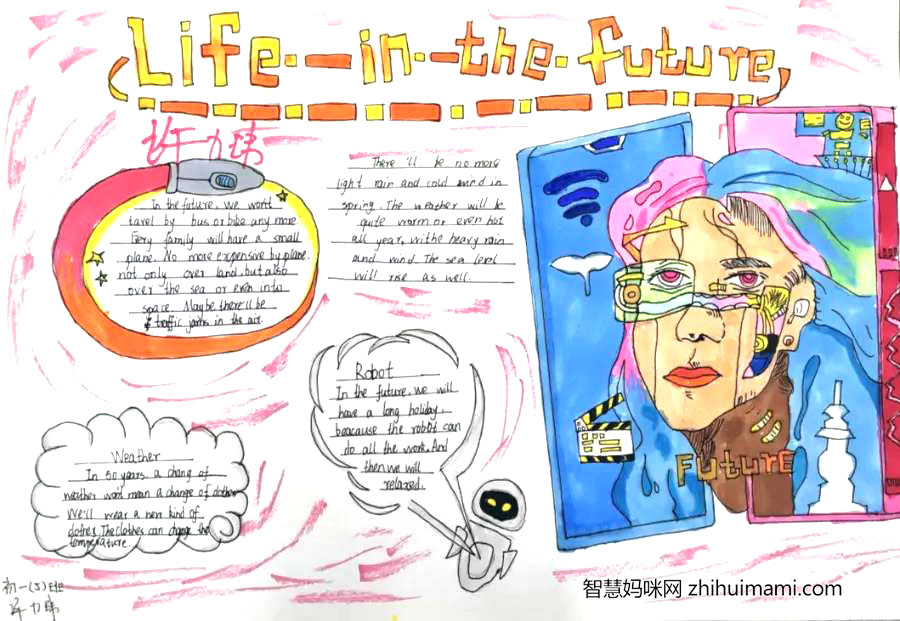 Life in the future
许力玮
In the future, we won't
tavel by bus or bike any more
Every family will have a small
plane. No more expensive by plane.
not only over land, but also
over the sea or even into
space. Maybe there'll be
traffic jams in the air.
There 'll be no more
light rain and cold wind in
spring. The weather will be
quite warm or even hot
all year, withe heavy rain
and wind. The sea level
will rise as well.
Robot
In the future, we will
have a long holiday,
beacause the robot can
do all the work. And
then we will
relaxed.
Weather
In 50 years, a chang of
weather won't mean a change of clothes
We'll wear a new kind of
clothes. The clothes can change the
temperature.
FuturE
初一(5)班
许力玮
智慧妈咪网 zhihuimami.com